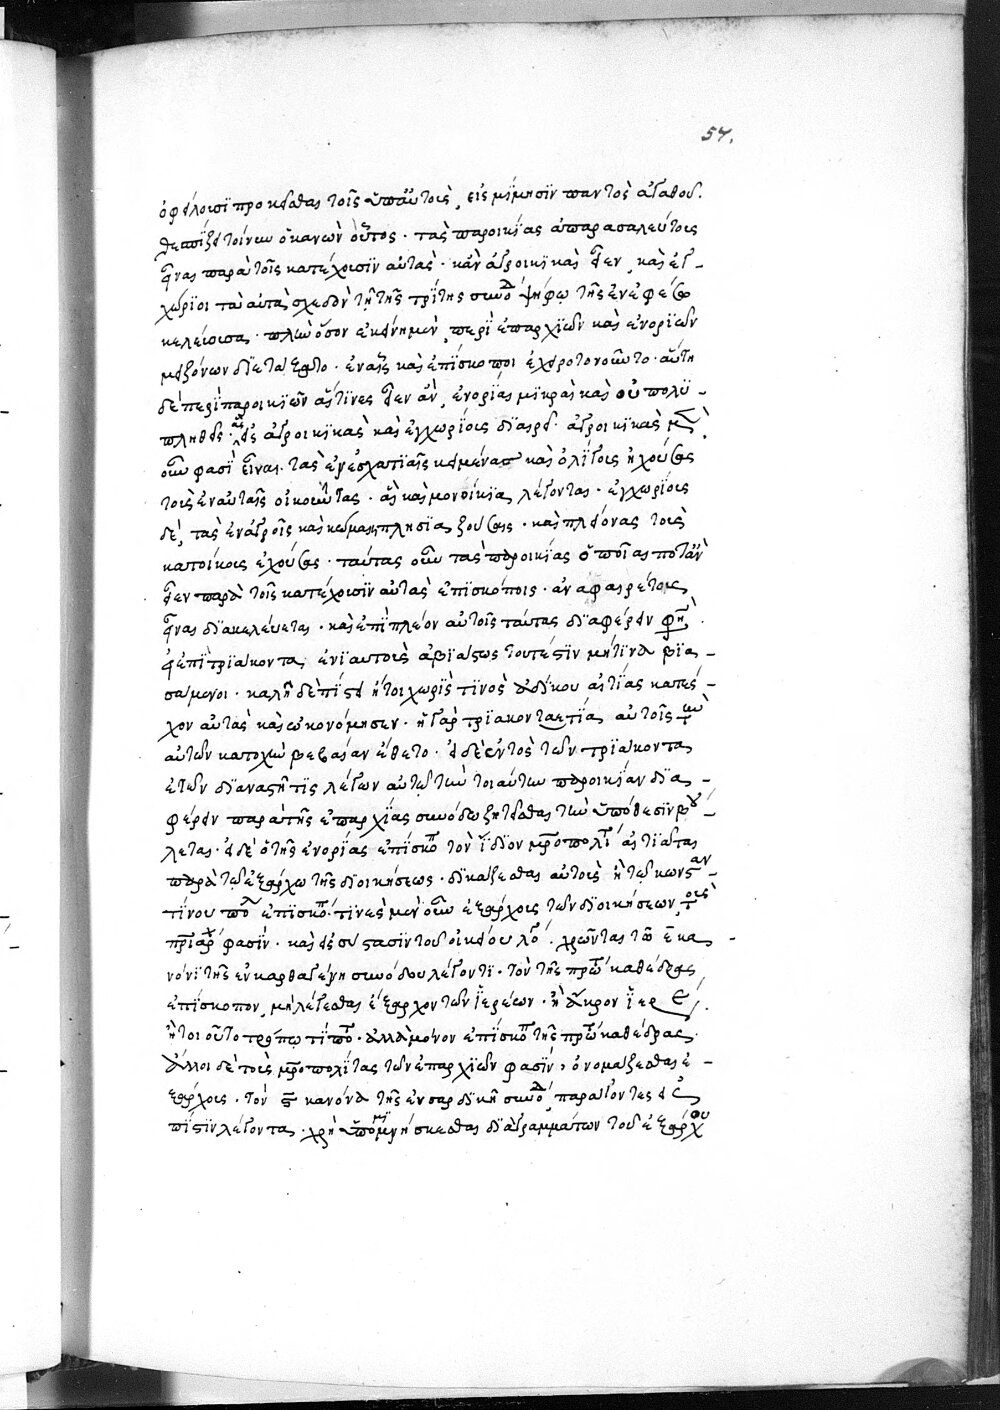 57.
ὀφείλουσι προκεῖσθαι τοῖς ὑπ' αὐτοὺς, εἰς μίμησιν παντὸς ἀγαθοῦ.
θεσπίζει τοίνυν ὁ κανὼν οὗτος. τὰς παροικίας ἀπαρασαλεύτους
εἶναι παρὰ τοῖς κατέχουσιν αὐτάς. κἂν ἀγροικικαὶ εἶεν, καὶ ἐγ-
χώριοι τὰ αὐτὰ σχεδὸν τῇ τῆς τρίτης συνόδ ψήφῳ τῆς ἐν ἐφέσῳ
κελεύουσα. πλὴν ὅσον ἐκείνη μὲν, περὶ ἐπαρχιῶν καὶ ἐνοριῶν
μειζόνων διετάξατο. ἐν αἷς καὶ ἐπίσκοποι ἐχειροτονοῦντο. αὕτη
δὲ περὶ παροικιῶν αἵτινες εἶεν ἂν, ἐνορίαι μικραὶ καὶ οὐ πολυ-
πληθεῖς. ἃς εἰς ἀγροικικὰς καὶ ἐγχωρίους διαιρεῖ. ἀγροικικὰς μὲν
οὖν φασὶ εἶναι τὰς ἐν ἐσχατιαῖς κειμένας καὶ ὀλίγους ἠχούσας
τοὺς ἐν αὐταῖς οἰκοῦντας. ἃς καὶ μονοίκια λέγονται. ἐγχωρίους
δέ, τὰς ἐν ἀγροῖς καὶ κώμαις πλησιαζούσας. καὶ πλείονας τοὺς
κατοίκους ἐχούσας. ταύτας οὖν τὰς παροικίας ὁποῖαι ποτ' ἂν
εἶεν παρὰ τοῖς κατέχουσιν αὐτὰς ἐπισκόποις. ἀναφαιρέτους
εἶναι διακελεύεται. καὶ ἐπὶ πλέον αὐτοῖς ταύτας διαφέρειν φησ.
εἰ ἐπὶ τριάκοντα ἐνιαυτοὺς ἀβιάστως τουτέστιν μή τινα βια-
σάμενοι. καλῇ δὲ πίστει ἤτοι χωρὶς τινὸς ἀδίκου αἰτίας κατέ-
χον αὐτὰς καὶ ᾠκονόμησεν. ἡ γὰρ τριακονταετία αὐτοῖς τὴν
αὐτῶν κατοχὴν βεβαίαν ἔθετο. εἰ δὲ ἐντὸς τῶν τριάκοντα
ἐτῶν διαναστῇ τις λέγων αὐτῷ τὴν τοιαύτην παροικίαν δια-
φέρειν παρὰ τῆς ἐπαρχίας συνόδω ζητεῖσθαι τὴν ὑπόθεσιν βού-
λεται. εἰ δὲ ὁ τῆς ἐνορίας ἐπίσκοπ τὸν ἴδιον μροπολί αἰτιᾶται
παρὰ τῷ ἐξάρχω τῆς διοικήσεως. δικάζεσθαι αὐτοὺς ἢ τῷ κωνσταν-
τίνου πόλ ἐπισκόπ. τινὲς μὲν οὖν ἐξάρχους τῶν διοικήσεων τοὺς
πριάρχ φασὶν. καὶ εἰς σύστασιν τοῦ οἰκείου λό. χρῶνται τῶ κα-
νόνι τῆς ἐν καρθαγένη συνόδου λέγοντι. τὸν τῆς πρώτ καθέδρας
ἐπίσκοπον, μὴ λέγεσθαι ἔξαρχον τῶν ἱερέων. ἢ ἄκρον ἱερέ
ἤτοι οὕτο τρόπω τί ποτ. ἀλλὰ μόνον ἐπίσκοπ τῆς πρώτ καθέδρας.
ἄλλοι δὲ τοὺς μροπολίτας τῶν ἐπαρχιῶν φασίν, ὀνομάζεσθαι ἐ-
ξάρχους. τὸν ϛ κανόνα τῆς ἐν σαρδικῆ συνόδ παράγοντες εἰς
πίστιν λέγοντα. χρὴ ὑπομιμνήσκεσθαι διὰ γραμμάτων τοῦ ἐξάρχου